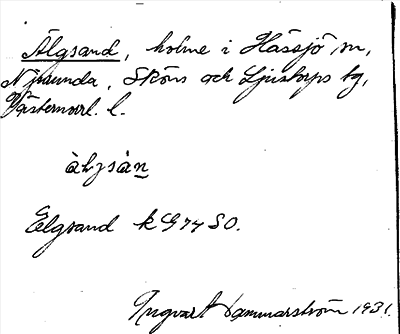 Älgsand, holme i Hässjö sn,
Njurunda, Sköns och Ljustorps tg,
Västernorrl. l.
Elgsand k G 74 SO.
Ingvart Hammarström 1931.